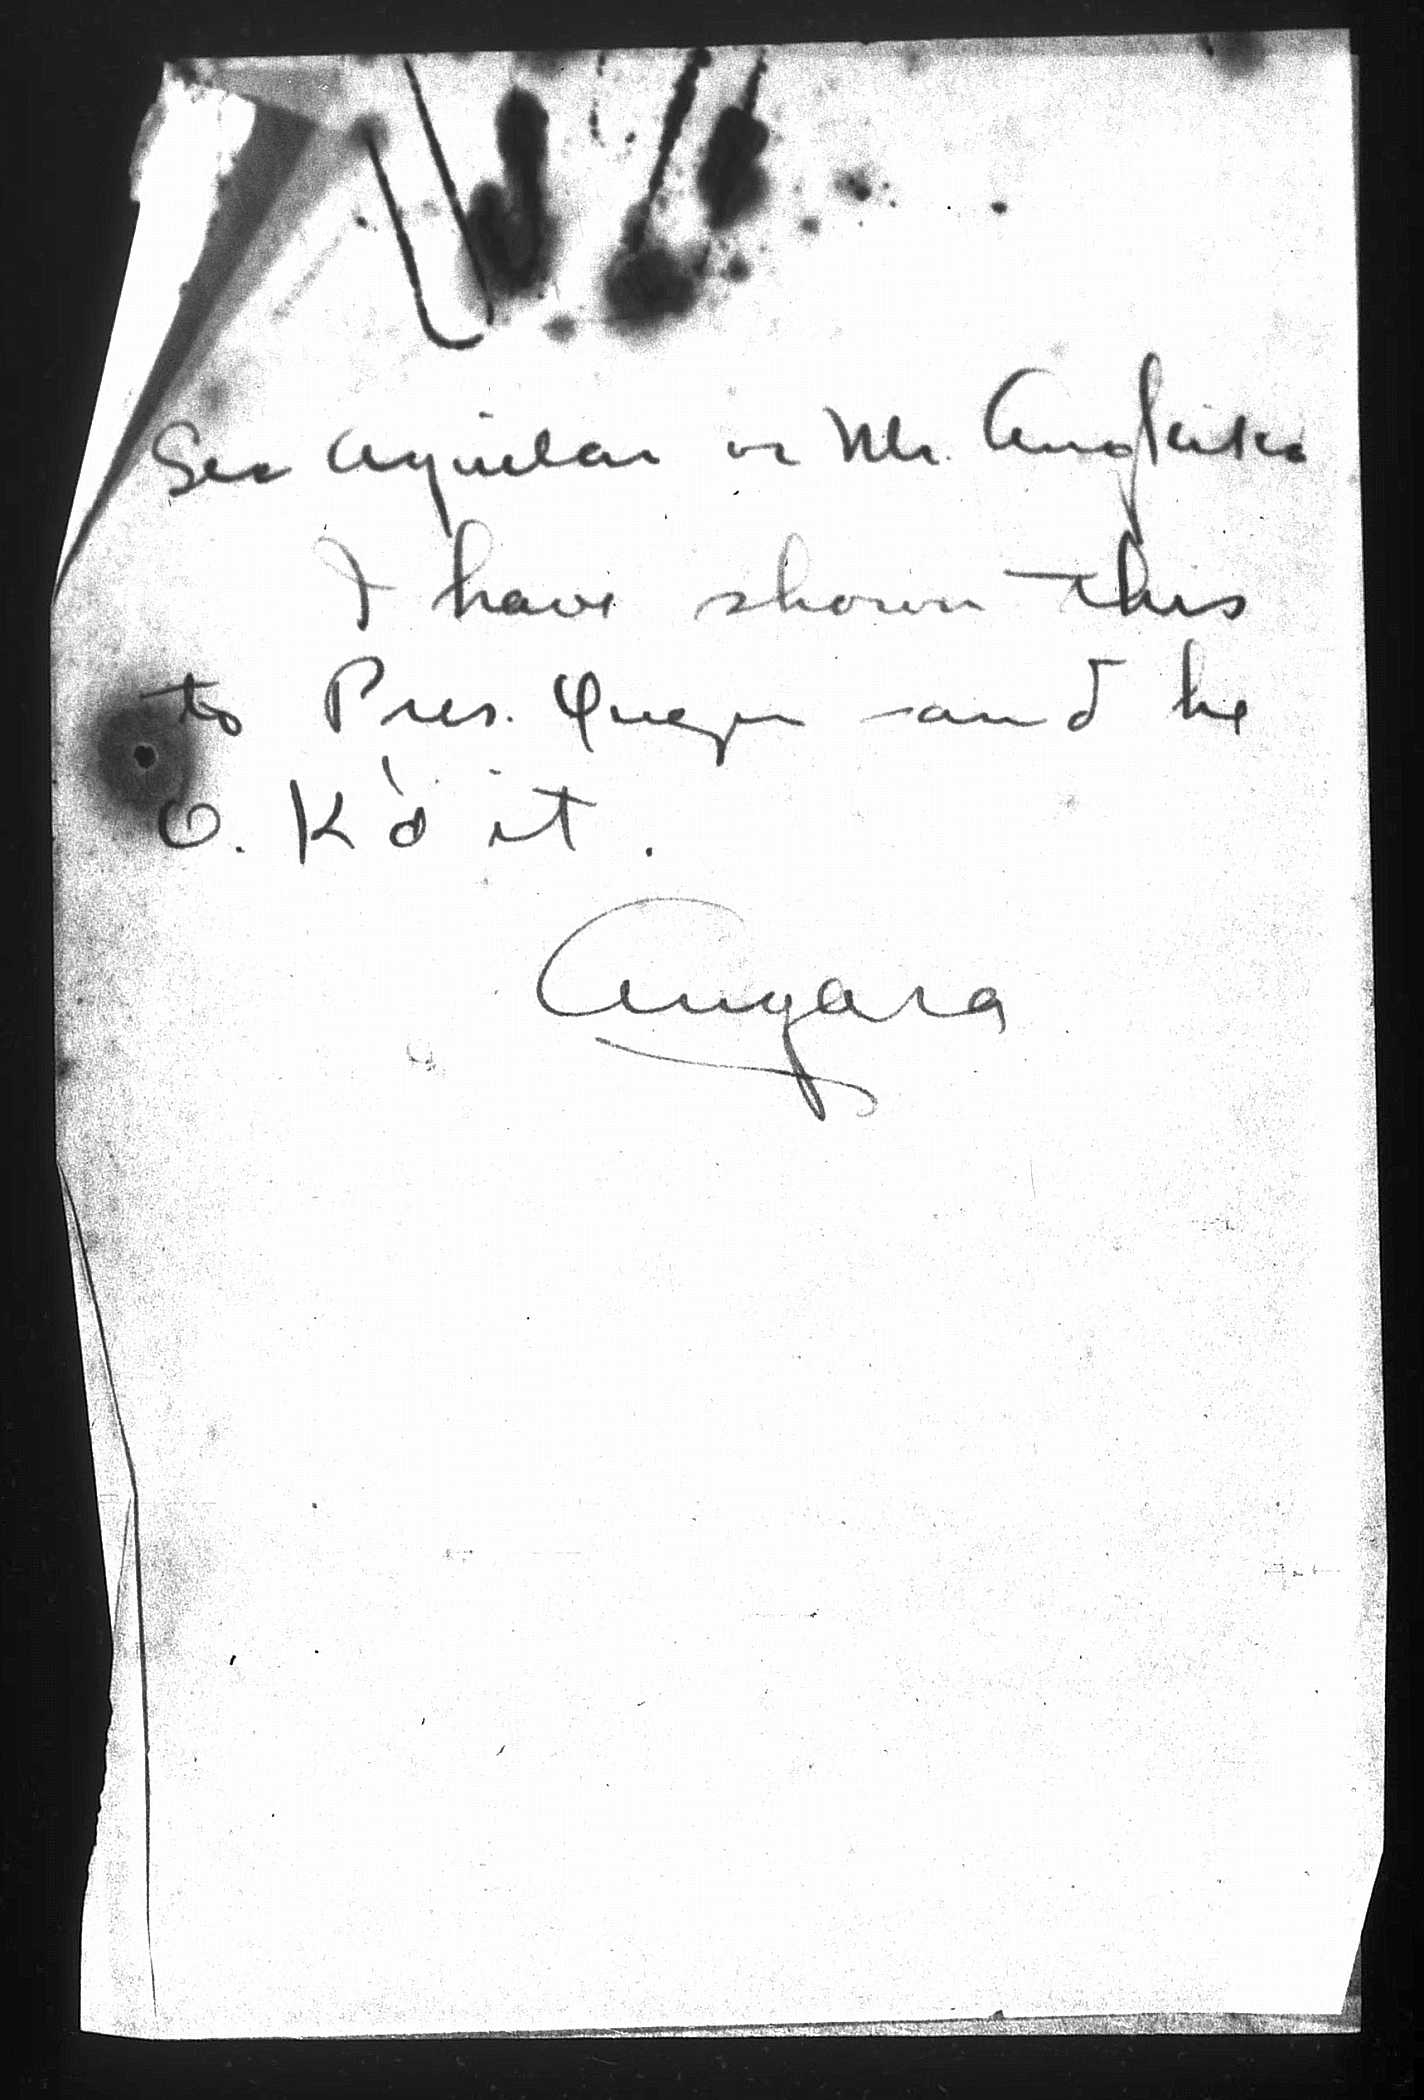 Sec Aguilar or Mr. Angkeko
I have shown this
to Pres. Quezon and he
O. K'd it.
Angara